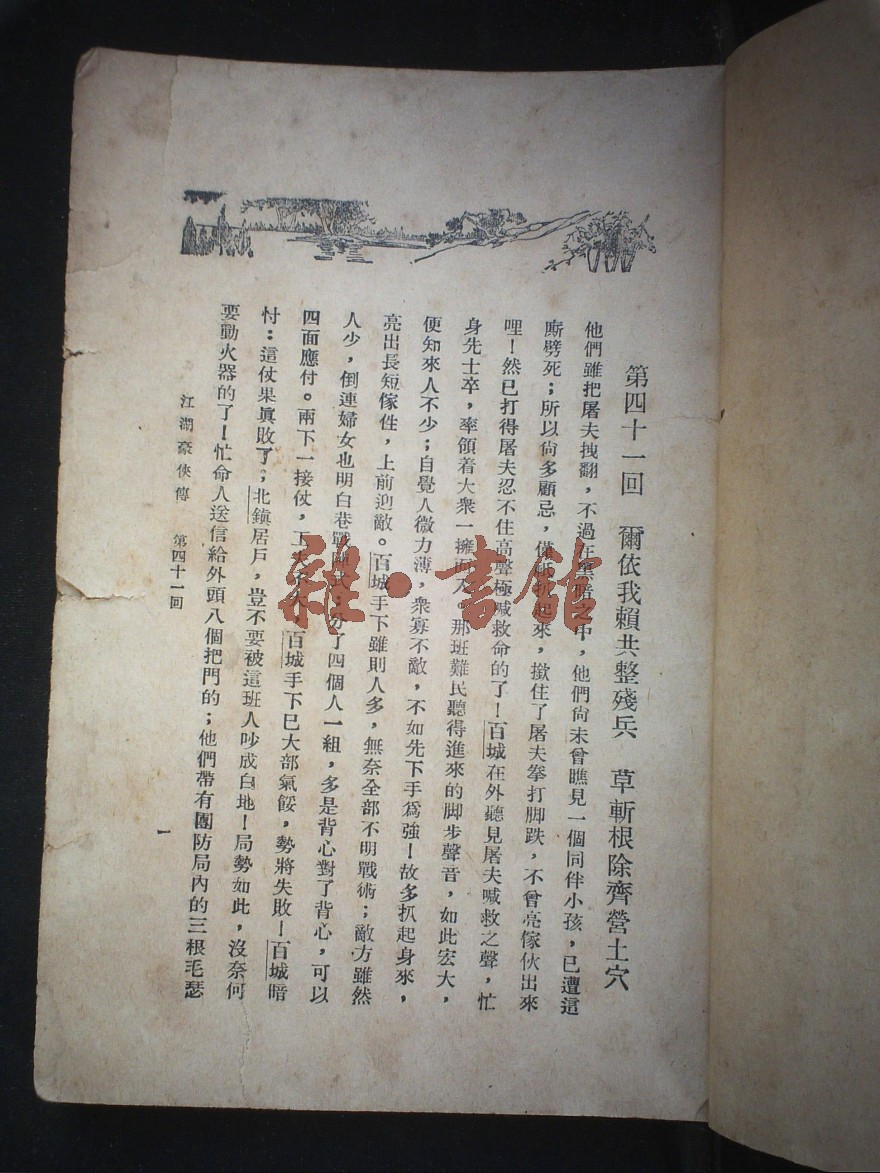 第四十一回　爾依我賴共整殘兵　草斬根除齊營土穴
他們雖把屠夫拽翻，不過在黑暗之中，他們尙未曾瞧見一個同伴小孩，已遭這
廝劈死；所以尙多顧忌，僅祇扒起來，撳住了屠夫拳打脚跌，不曾亮傢伙出來
哩！然已打得屠夫忍不住高聲極喊救命的了！百城在外聽見屠夫喊救之聲，忙
身先士卒，率領着大衆一擁而入，那班難民聽得進來的脚步聲音，如此宏大，
便知來人不少；自覺人微力薄，衆寡不敵，不如先下手爲強！故多扒起身來，
亮出長短傢伙，上前迎敵。百城手下雖則人多，無奈全部不明戰術；敵方雖然
人少，倒連婦女也明白巷戰陣式；分了四個人一組，多是背心對了背心，可以
四面應付。兩下一接仗，工夫不大，百城手下巳大部氣餒，勢將失敗！百城暗
忖：這仗果眞敗了；北鎮居戶，豈不要被這班人吵成白地！局勢如此，沒奈何
要動火器的了！忙命人送信給外頭八個把門的；他們帶有團防局內的三根毛瑟
江湖豪俠傳　第四十一回
一
雜·書館